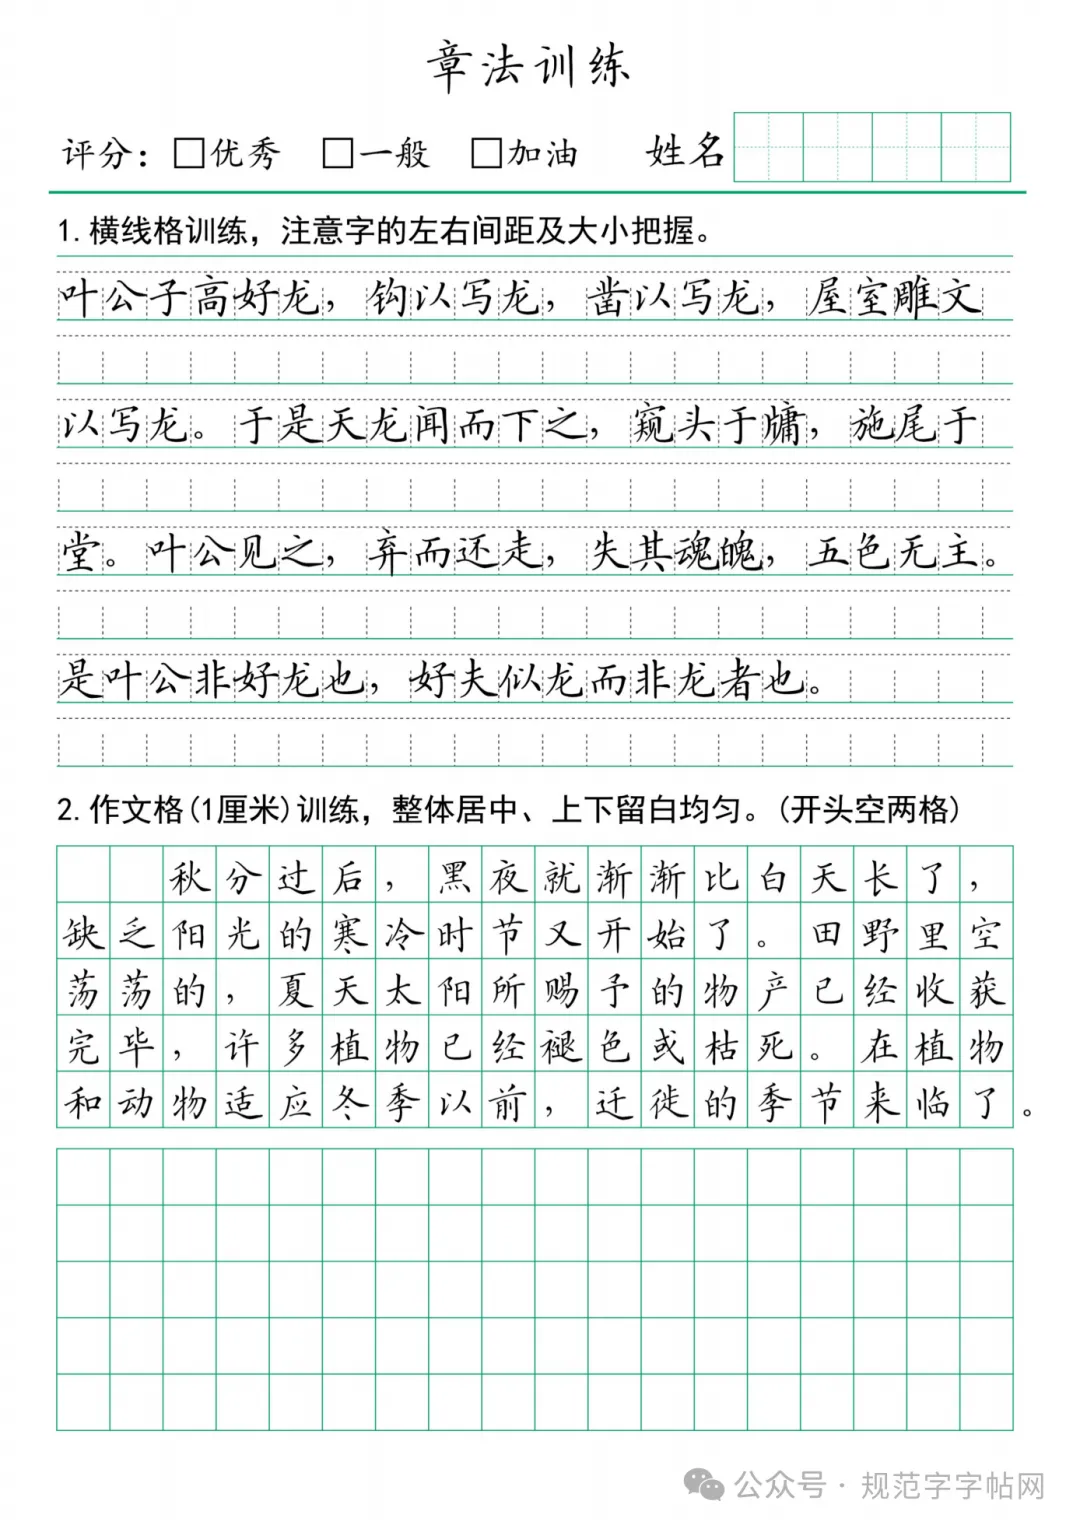 章法训练
评分：□优秀 □一般 □加油 姓名
1.横线格训练，注意字的左右间距及大小把握。
叶公子高好龙，钩以写龙，凿以写龙，屋室雕文
以写龙。于是天龙闻而下之，窥头于牖，施尾于
堂。叶公见之，弃而还走，失其魂魄，五色无主。
是叶公非好龙也，好夫似龙而非龙者也。
2.作文格(1厘米)训练，整体居中、上下留白均匀。(开头空两格)
秋分过后，黑夜就渐渐比白天长了，
缺乏阳光的寒冷时节又开始了。田野里空
荡荡的，夏天太阳所赐予的物产已经收获
完毕，许多植物已经褪色或枯死。在植物
和动物适应冬季以前，迁徙的季节来临了。
公众号·规范字字帖网